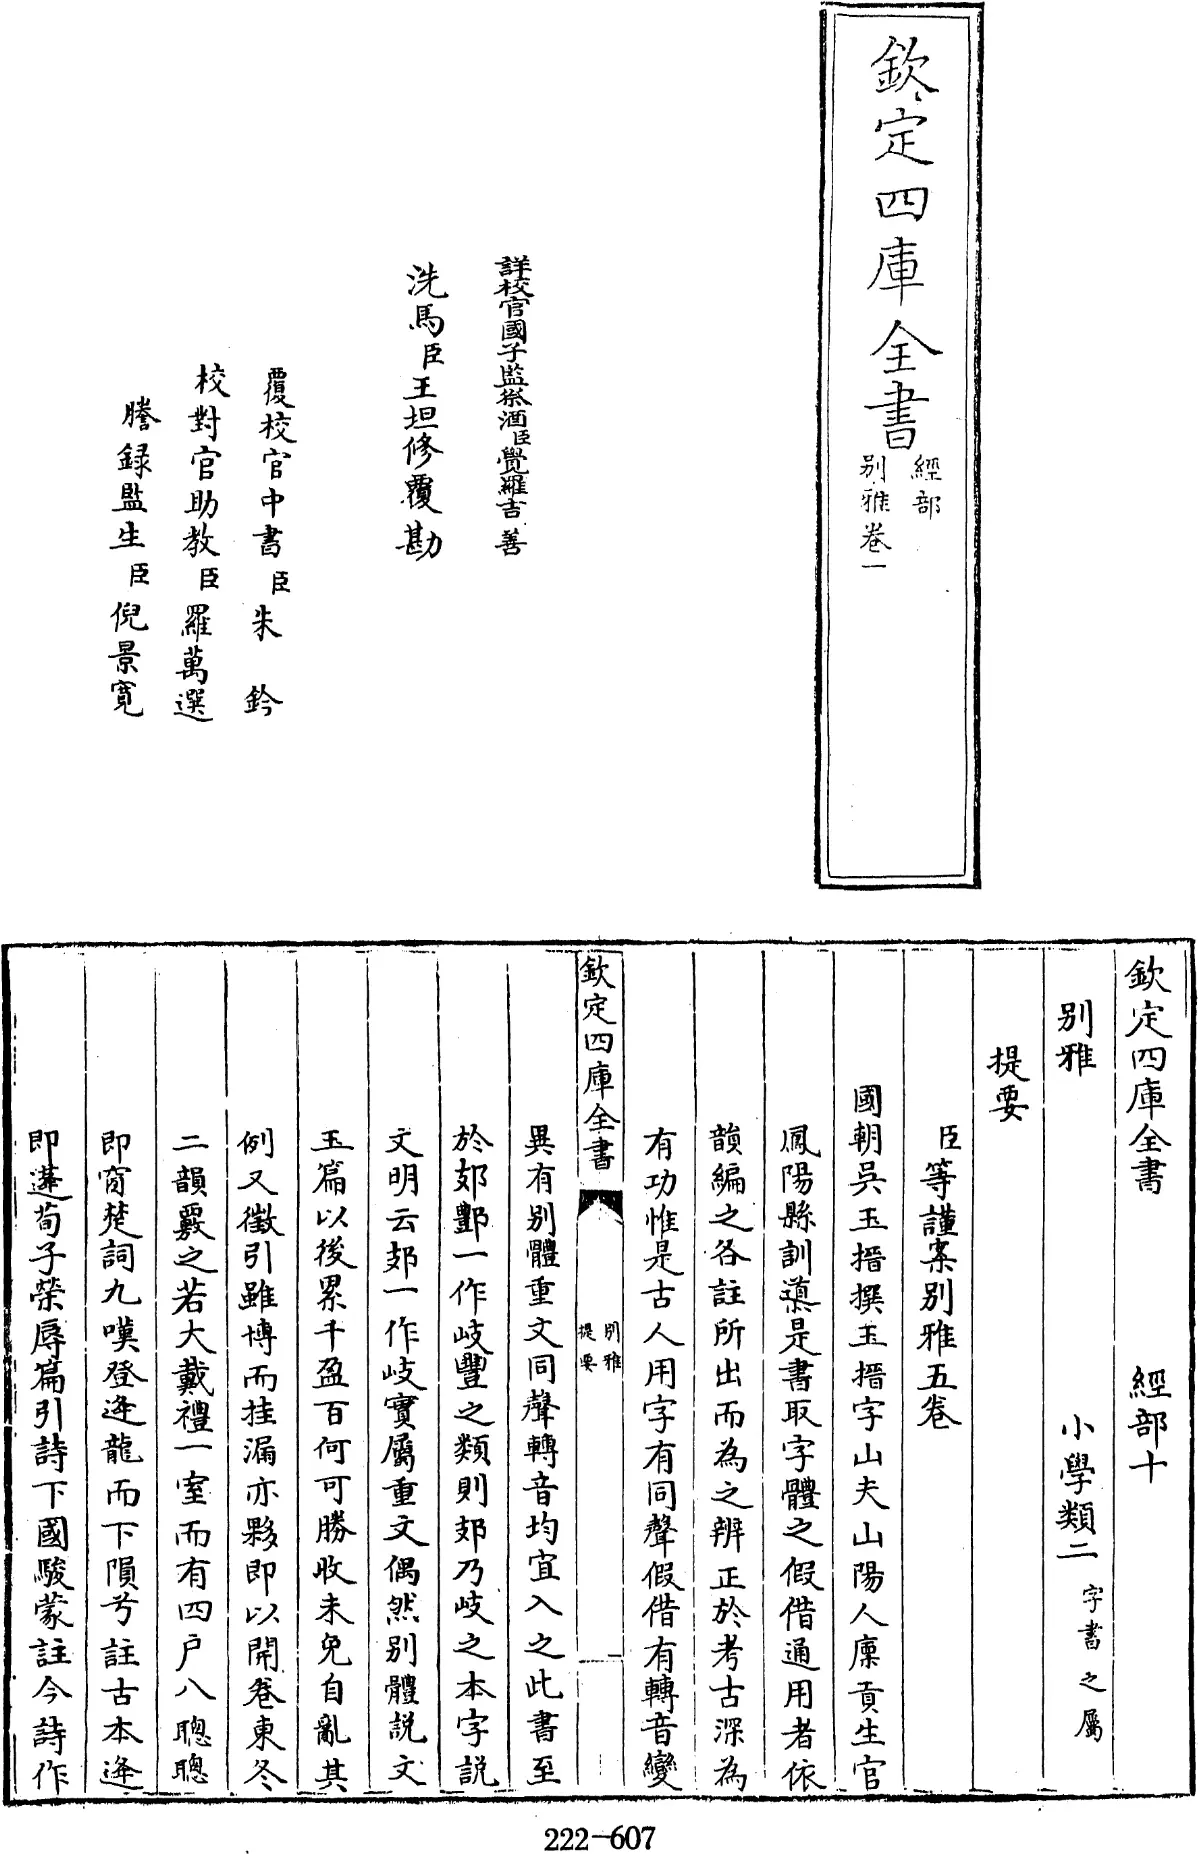 欽定四庫全書
經部
别雅卷一
詳校官國子監祭酒臣覺羅吉善
洗馬臣王坦修覆勘
覆校官中書臣朱鈐
校對官助教臣羅萬選
謄録監生臣倪景寛
欽定四庫全書 經部十
别雅 小學類二 字書之屬
提要
臣等謹案别雅五卷
國朝吳玉搢撰玉搢字山夫山陽人廩貢生官
鳳陽縣訓導是書取字體之假借通用者依
韻編之各註所出而為之辨正於考古深為
有功惟是古人用字有同聲假借有轉音變
欽定四庫全書
别雅
提要
一
異有别體重文同聲轉音均宜入之此書至
於郊酆一作岐豐之類則郊乃岐之本字説
文明云郊一作岐實屬重文偶然别體説文
玉篇以後累千盈百何可勝收未免自亂其
例又徵引雖博而挂漏亦夥即以開卷東冬
二韻覈之若大戴禮一室而有四户八聰聰
即窗楚詞九嘆登逄龍而下隕兮註古本逄
即蓬荀子榮辱篇引詩下國駿蒙註今詩作
222-607